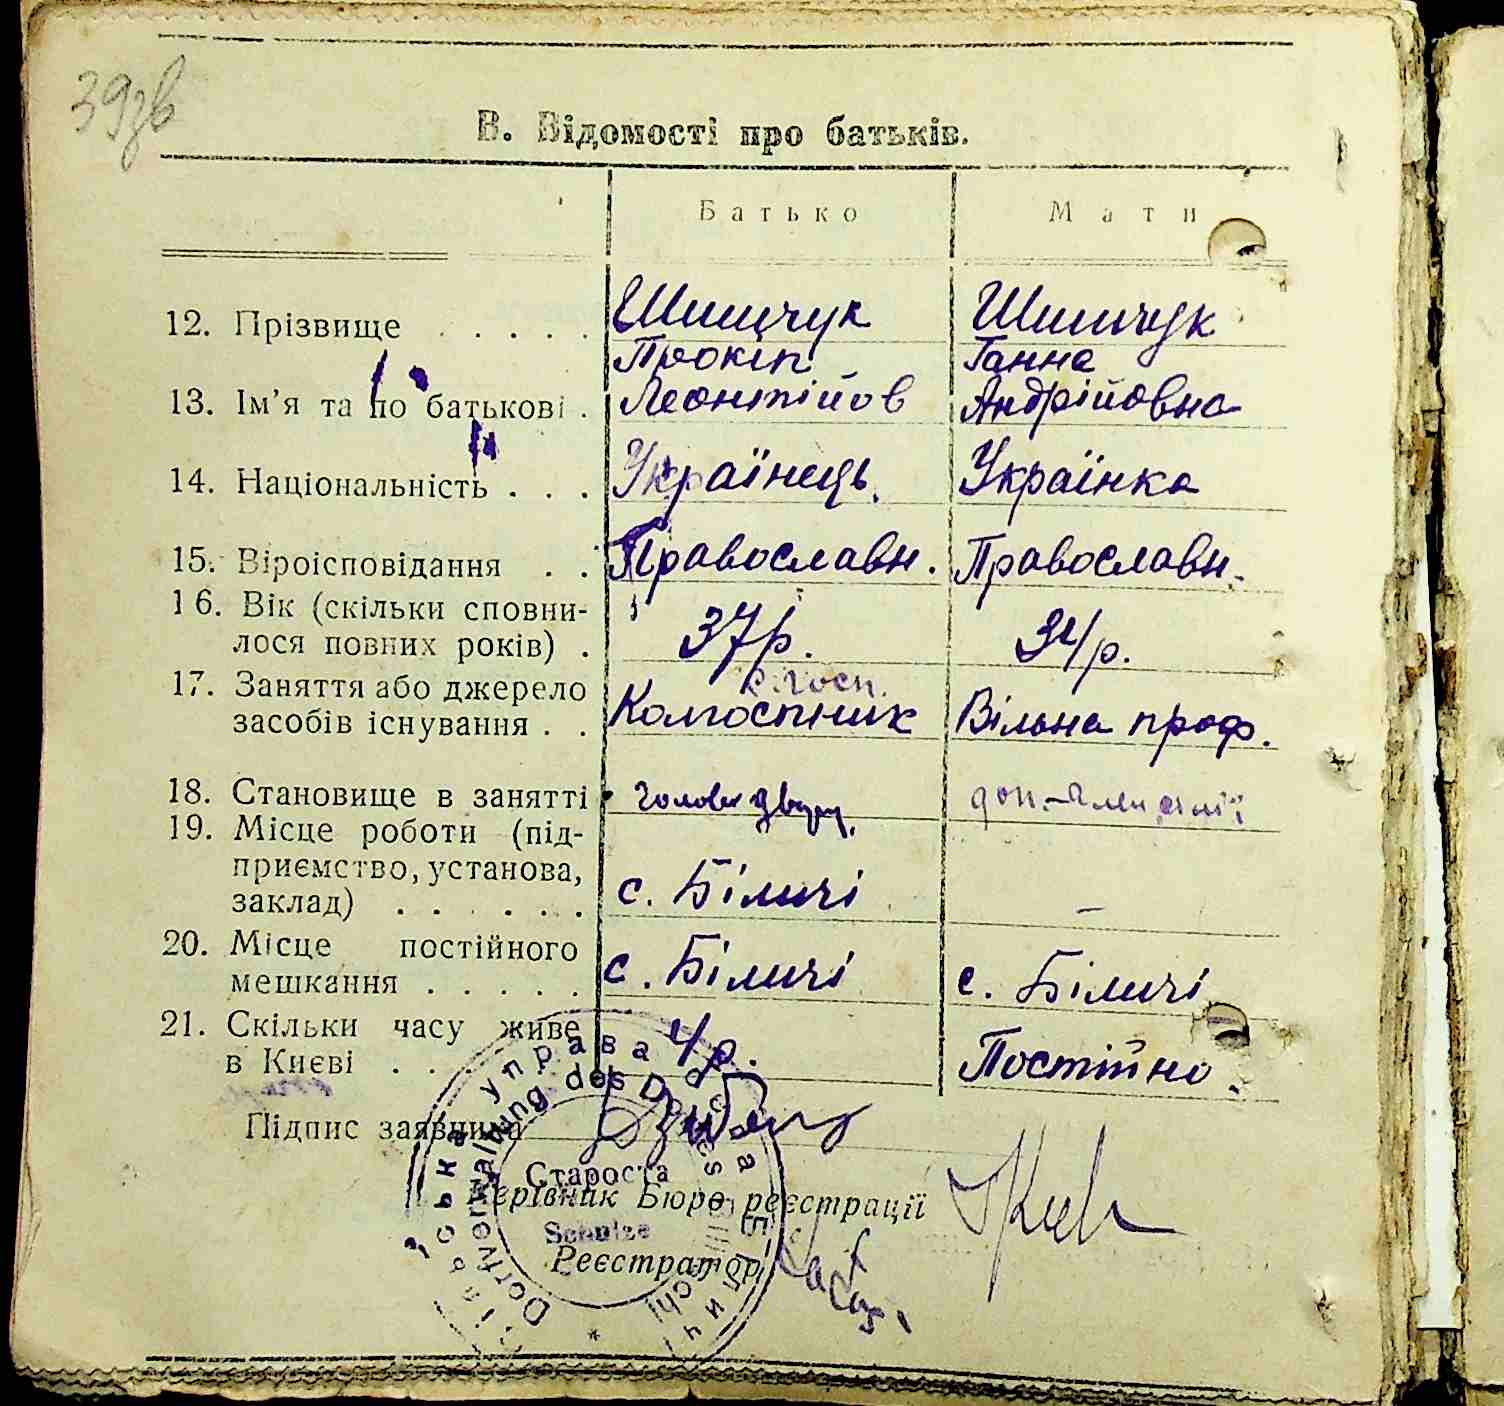 39зв
В. Відомості про батьків.
Батько Мати
12. Прізвище . . . . . Шимчук Шимчук
Прокіп Ганна
13. Ім’я та по батькові . Леонтійов Андрійовна
14. Національність . . . Українець. Українка
15. Віроісповідання . . Православн. Православн.
16. Вік (скільки сповни-
лося повних років) . 37 р. 34 р.
17. Заняття або джерело с. госп.
засобів існування . . Колгоспник Вільна проф.
18. Становище в занятті голова двору. доп. член сімї
19. Місце роботи (під-
приємство, установа,
заклад) . . . . . . с. Біличі –
20. Місце постійного
мешкання . . . . . с. Біличі с. Біличі
21. Скільки часу живе
в Києві . . . 4 р. Постійно.
Підпис заявника
Староста
Керівник Бюро реєстрації
Schulze
Реєстратор
сільська управа села Біличі
Dorfverwaltung des Dorfes Bilitschi